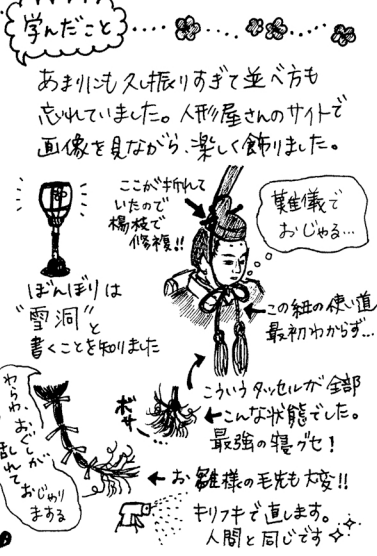 学んだこと
あまりにも久し振りすぎて並べ方も
忘れていました。人形屋さんのサイトで
画像を見ながら、楽しく飾りました。
ここが折れて
いたので
楊枝で
修複!!
難儀で
おじゃる…
ぼんぼりは
"雪洞"と
書くことを知りました
この紐の使い道
最初わからず…
こういうタッセルが全部
こんな状態でした。
最強の寝グセ!
ボサ
わらわ、おぐしが
乱れて
おじゃり
まする
お雛様の毛先も大変!!
キリフキで直します。
人間と同じです